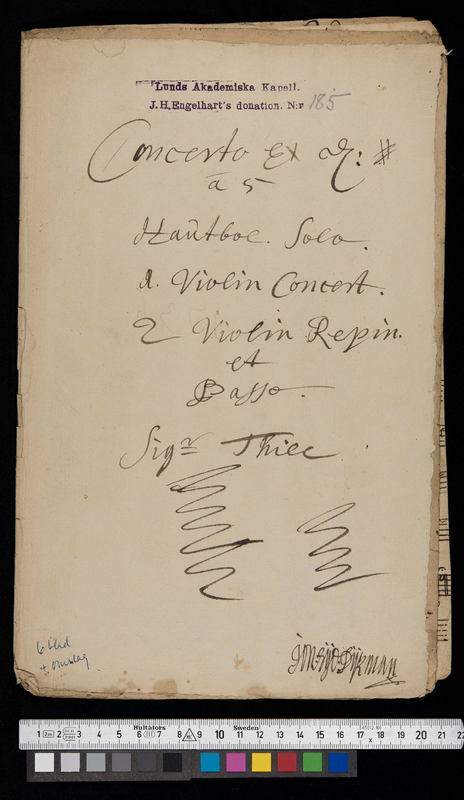 Lunds Akademiska Kapell.
J.H.Engelhart's donation. N:r 185
Concerto Ex A: #
à 5
Hautboe. Solo.
1. Violin Concert.
2 Violin Repin.
et
Basso.
Sigr Thiec
6 blad
+ omslag
Hultafors Sweden
1 2 3 4 5 6 7 8 9 10 11 12 13 14 15 16 17 18 19 20 21 22